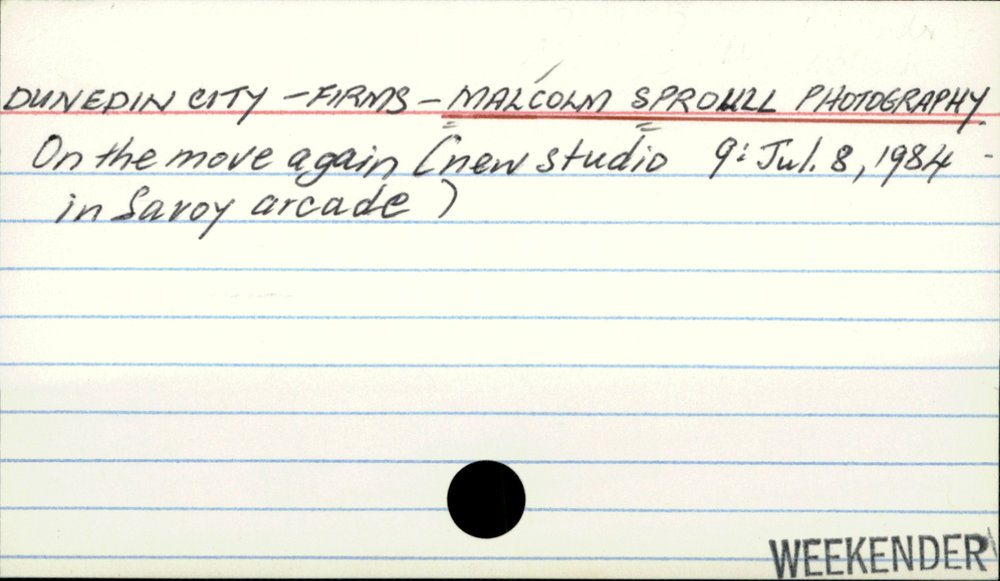 DUNEDIN CITY - FIRMS - MALCOLM SPROULL PHOTOGRAPHY.
On the move again (new studio 9: Jul. 8, 1984 -
in Savoy arcade)
WEEKENDER